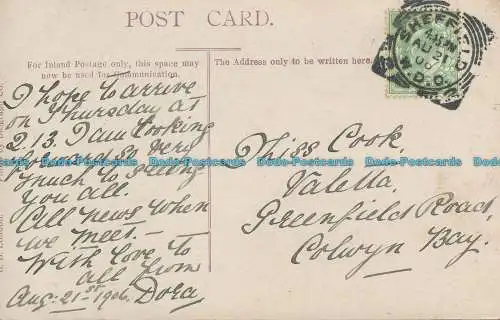 POST CARD.
For Inland Postage only, this space may
now be used for Communication.
The Address only to be written here.
SHEFFIELD
AU 21
06
I hope to arrive
on Thursday at
2.13. I am looking
forward so very
much to seeing
you all.
All news when
we meet. —
With love to
all from
Aug. 21st 1906. Dora
Miss Cook.
Valetta.
Greenfield Road,
Colwyn Bay.
Dodo-Postcards Dodo-Postcards Dodo-Postcards Dodo-Postcards Dodo-Postcards